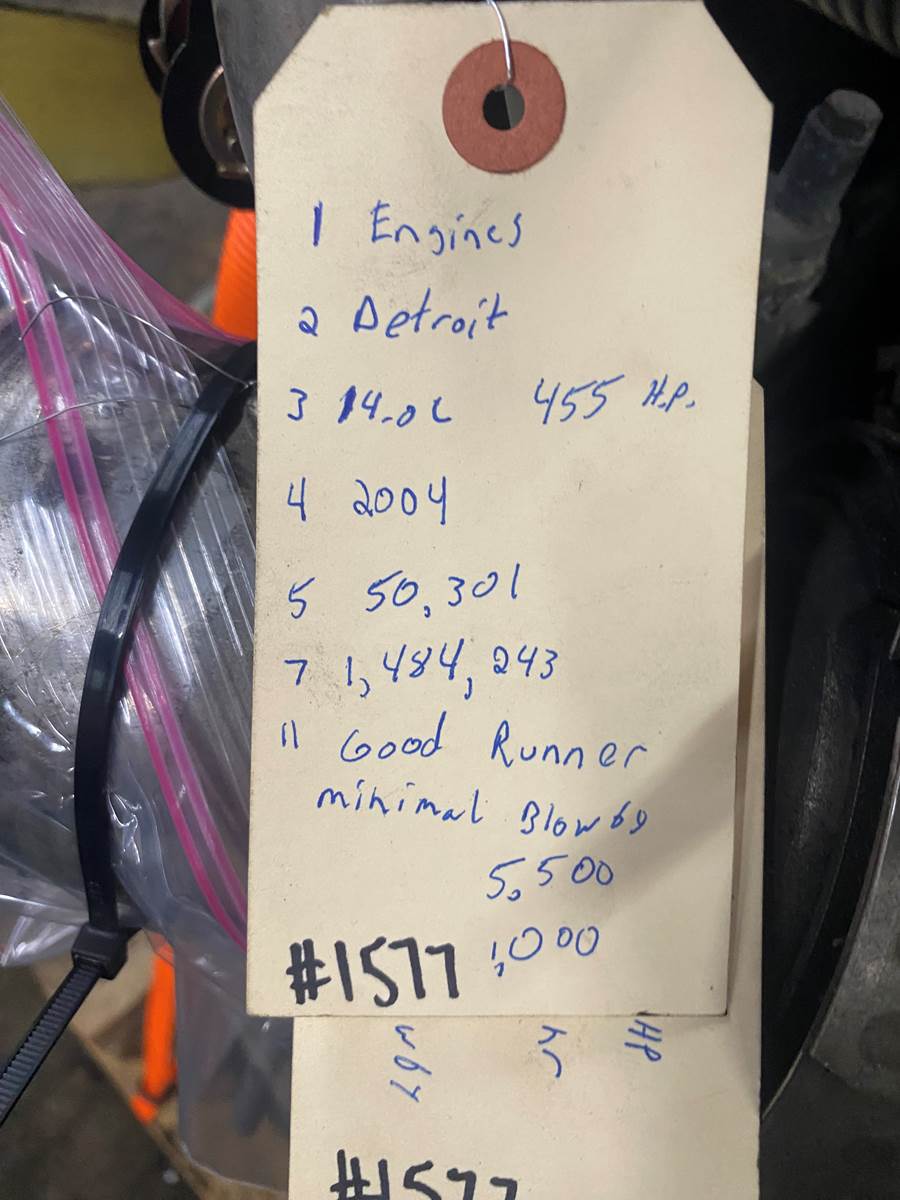 1 Engines
2 Detroit
3 14.0L 455 H.P.
4 2004
5 50,301
7 1,484,243
11 Good Runner
minimal Blowby
5,500
1,000
#1577
HP
#1577